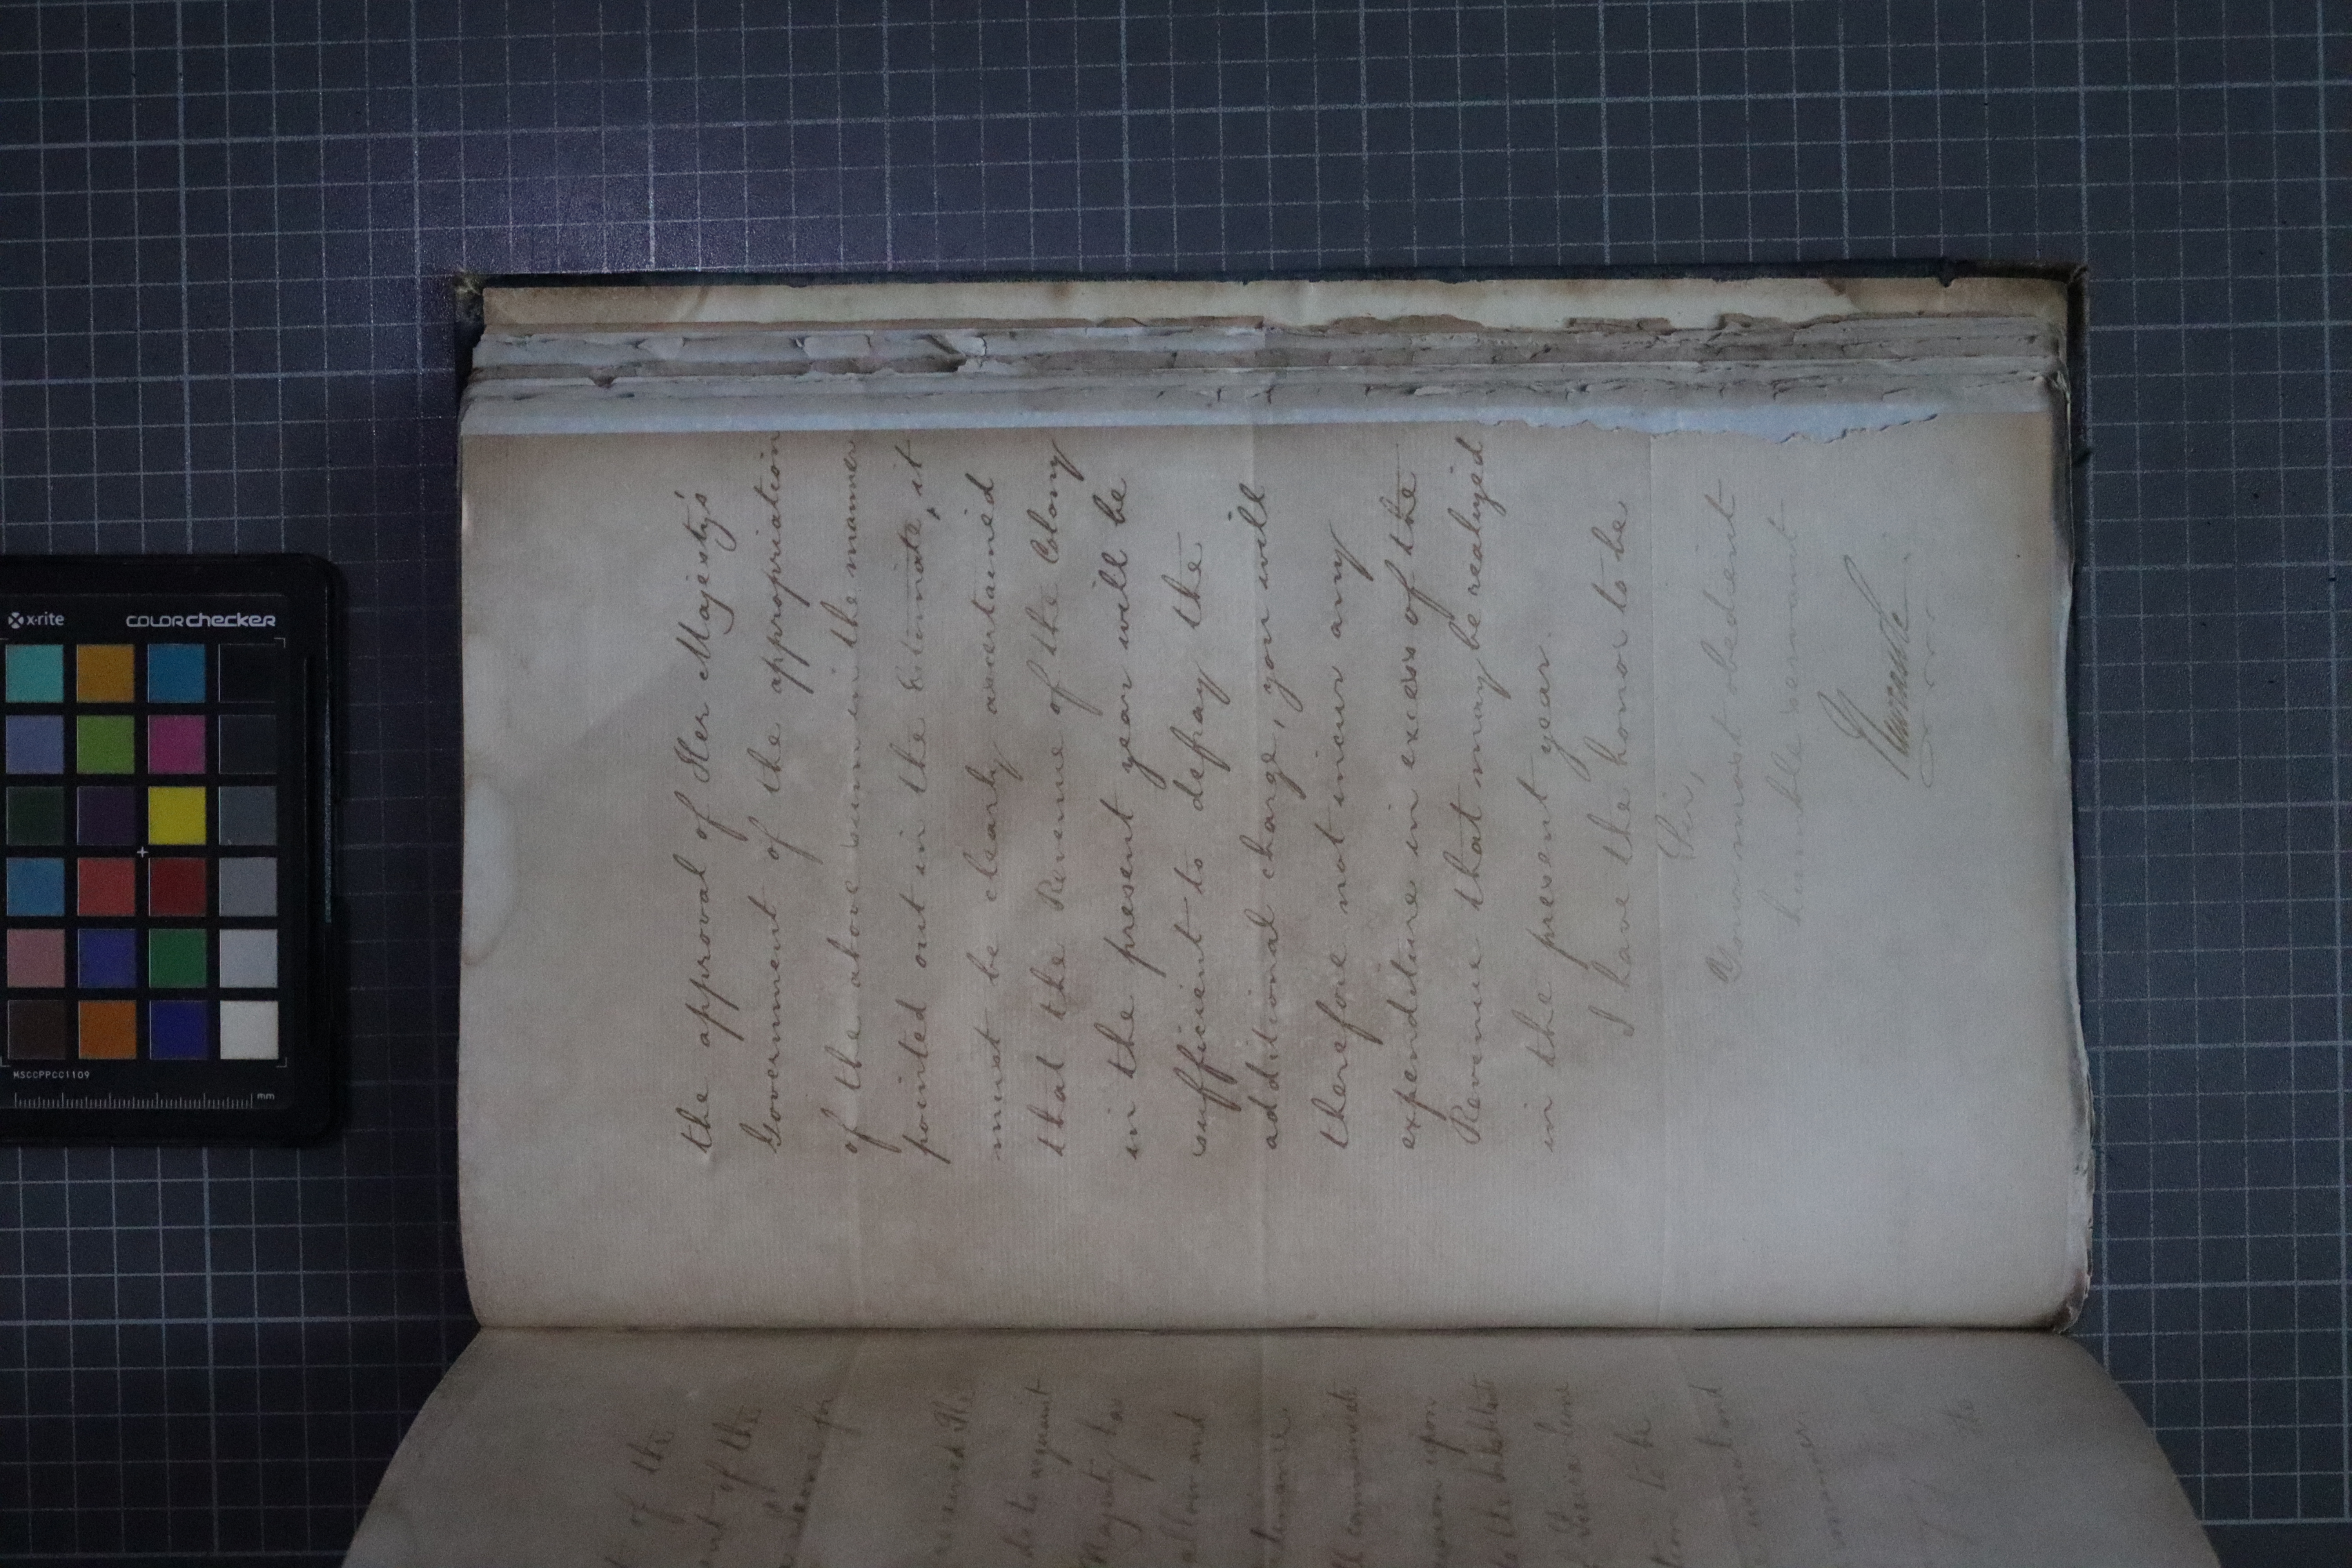 the approval of Her Majesty's
Government of the appropriation
of the above sum in the manner
pointed out in the Estimate, it
must be clearly ascertained
that the Revenue of the Colony
in the present year will be
sufficient to defray the
additional charge, you will
therefore not incur any
expenditure in excess of the
Revenue that may be realized
in the present year.
I have the honor to be
Sir,
Your most obedient
humble servant
Newcastle
of the
of the
for
to acquaint
Majesty has
allow and
communicate
upon
to be
and
manner
to
x-rite
colorchecker
MSCCPPCC1109
mm